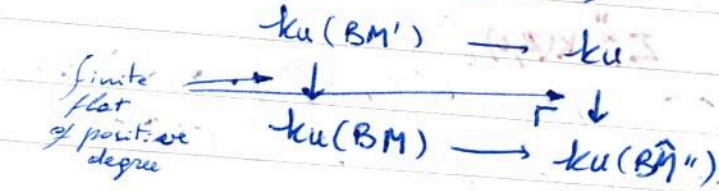 ku(BM') → ku
finite
flat
of positive
degree
↓ Γ ↓
ku(BM) → ku(BM̂'')